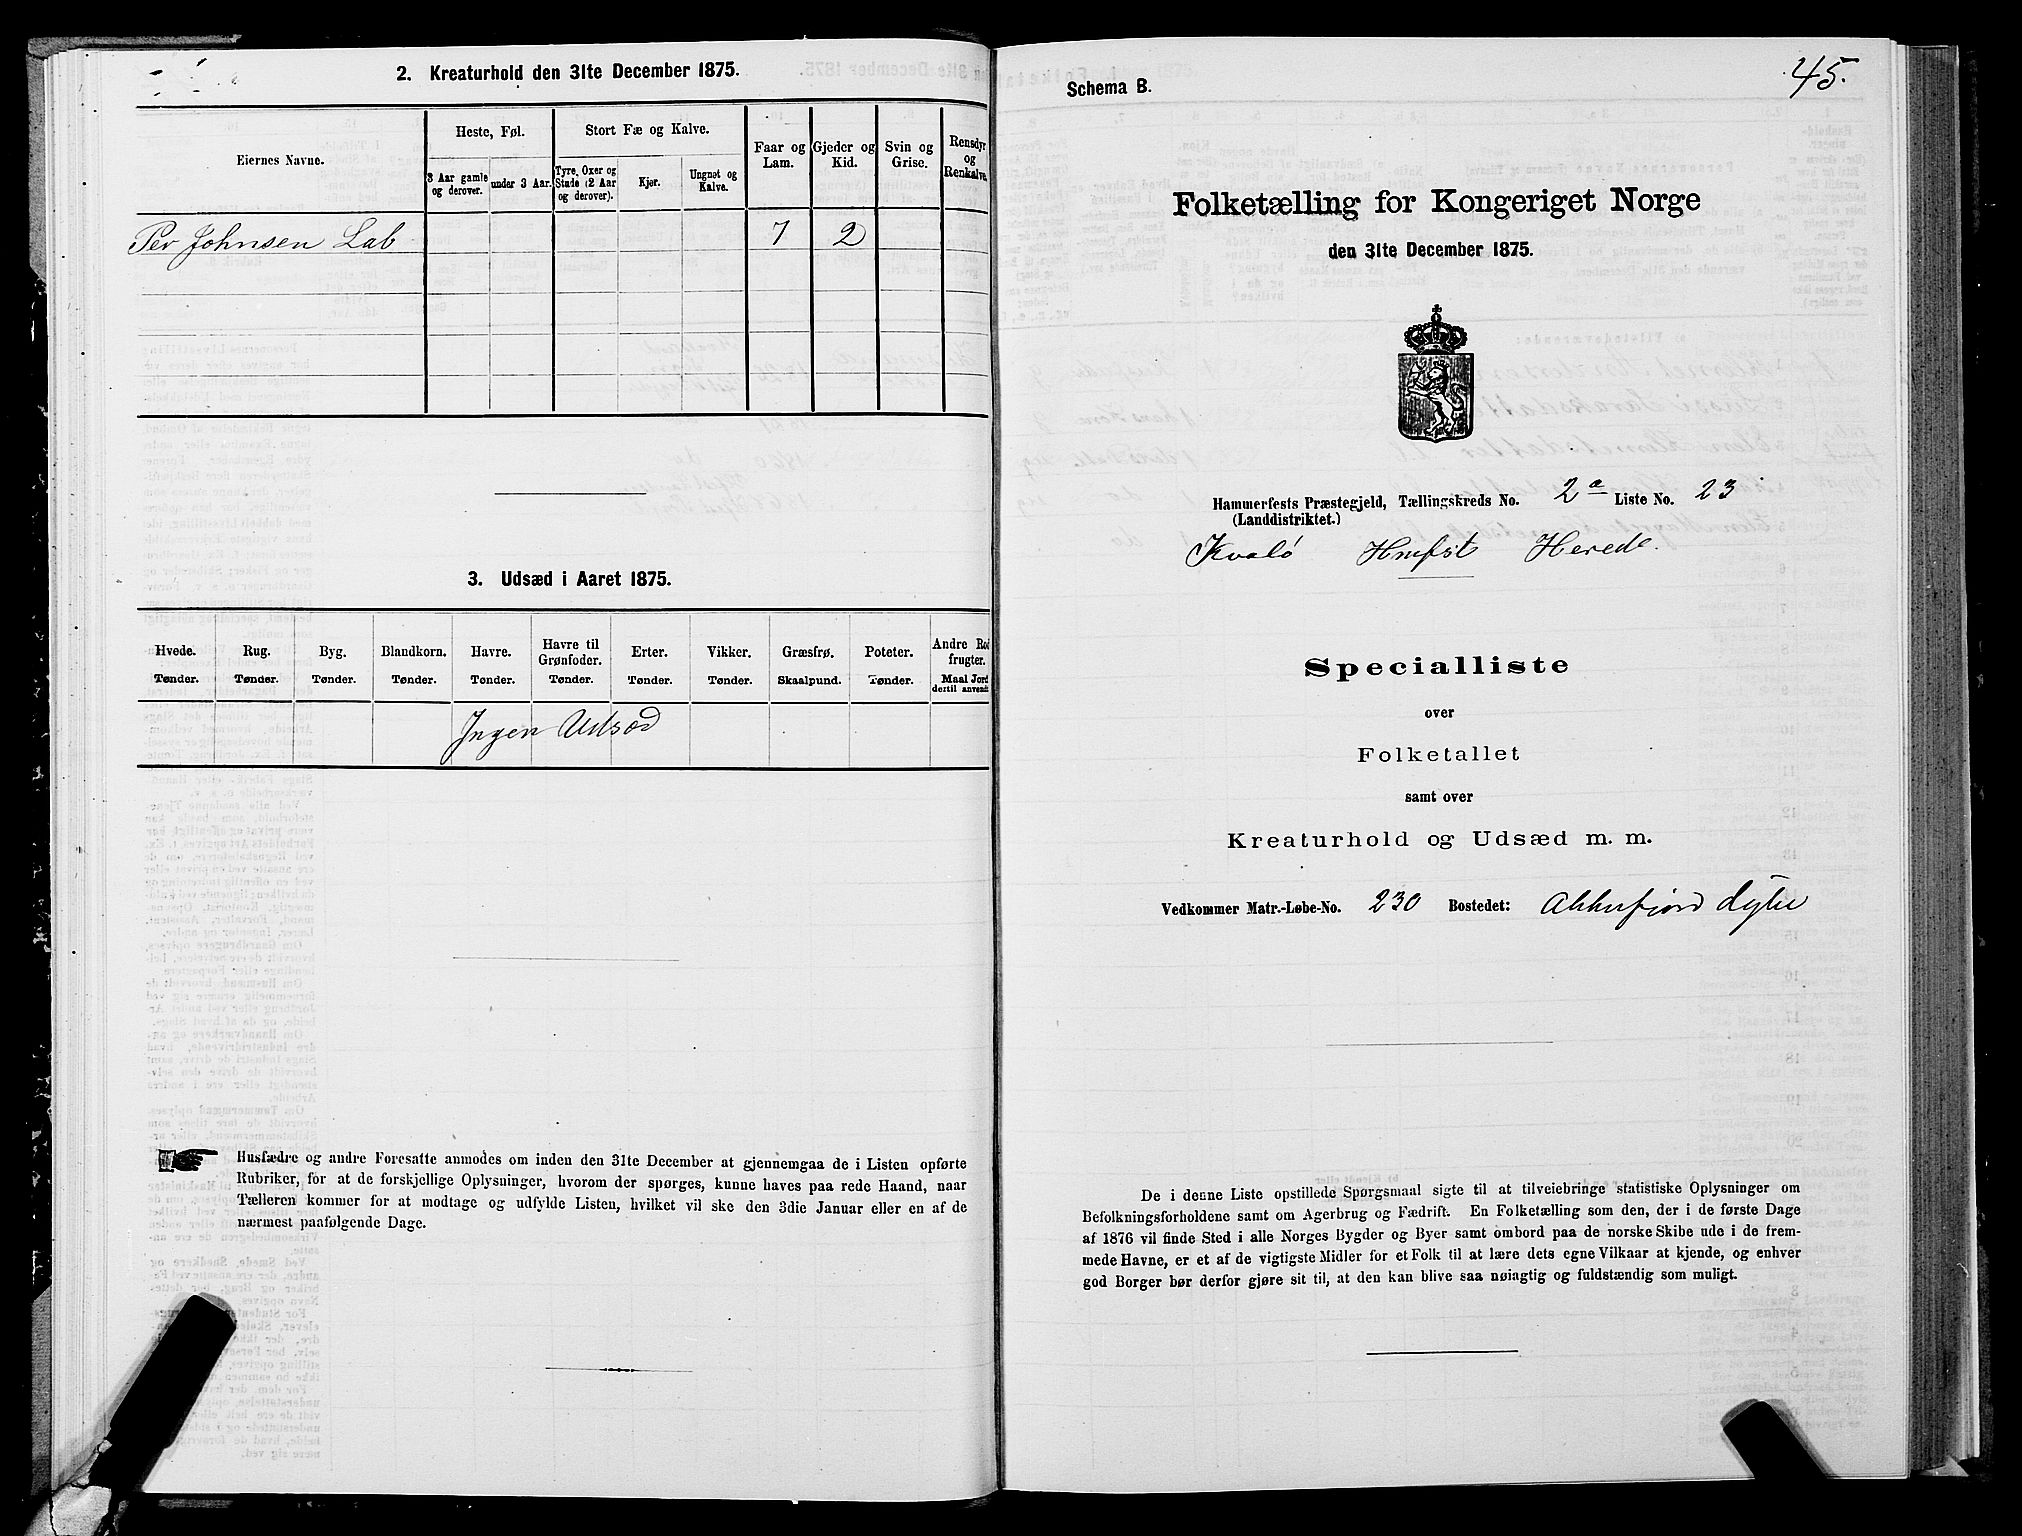 2. Kreaturhold den 31te December 1875.
Eiernes Navne.
Heste, Føl.
Stort Fæ og Kalve.
Faar og Lam.
Gjeder og Kid.
Svin og Grise.
Rensdyr og Renkalve.
3 Aar gamle og derover.
under 3 Aar.
Tyre, Oxer og Stude (2 Aar og derover).
Kjør.
Ungnøt og Kalve.
Per Johnsen Lab 7 2
3. Udsæd i Aaret 1875.
Hvede. Rug. Byg. Blandkorn. Havre. Havre til Grønfoder. Erter. Vikker. Græsfrø. Poteter. Andre Rod frugter.
Tønder. Tønder. Tønder. Tønder. Tønder. Tønder. Tønder. Tønder. Skaalpund. Tønder. Maal Jord dertil anvendt
Ingen Udsæd
Husfædre og andre Foresatte anmodes om inden den 31te December at gjennemgaa de i Listen opførte
Rubriker, for at de forskjellige Oplysninger, hvorom der spørges, kunne haves paa rede Haand, naar
Tælleren kommer for at modtage og udfylde Listen, hvilket vil ske den 3die Januar eller en af de
nærmest paafølgende Dage.
45.
Schema B.
Folketælling for Kongeriget Norge
den 31te December 1875.
Hammerfests Præstegjeld, Tællingskreds No. 2a Liste No. 23
(Landdistriktet.)
Kvalö Hmfst Herede.
Specialliste
over
Folketallet
samt over
Kreaturhold og Udsæd m. m.
Vedkommer Matr.-Løbe-No. 230 Bostedet: Akkefjord
De i denne Liste opstillede Spørgsmaal sigte til at tilveiebringe statistiske Oplysninger om
Befolkningsforholdene samt om Agerbrug og Fædrift. En Folketælling som den, der i de første Dage
af 1876 vil finde Sted i alle Norges Bygder og Byer samt ombord paa de norske Skibe ude i de frem-
mede Havne, er et af de vigtigste Midler for et Folk til at lære dets egne Vilkaar at kjende, og enhver
god Borger bør derfor gjøre sit til, at den kan blive saa nøiagtig og fuldstændig som muligt.